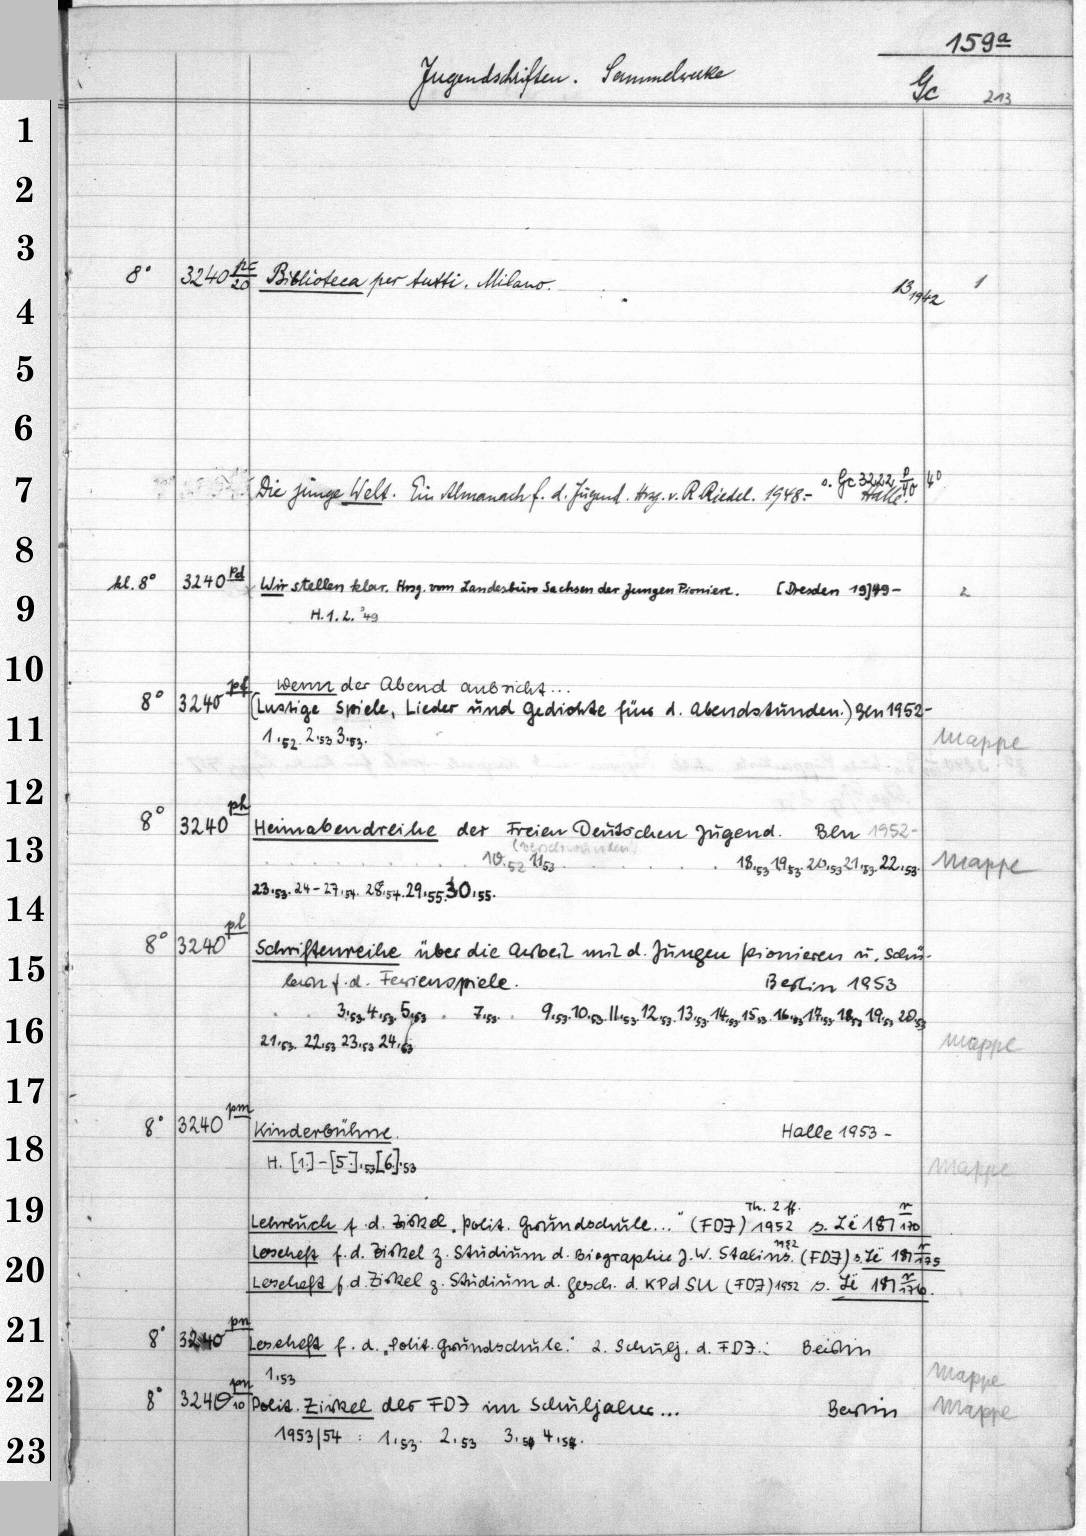 159a
Jugendschriften. Sammelwerke
Gc 213
1
2
3
8° 3240 pc/20 Biblioteca per tutti. Milano. B 1942 1
4
5
6
7 Die junge Welt. Ein Almanach f. d. Jugend. Hrsg. v. R. Riedel. 1948.- s. Gc 3222 p/40 4°
Halle.
8
kl. 8° 3240 pd Wir stellen klar. Hrsg. vom Landesbüro Sachsen der Jungen Pioniere. [Dresden 19]49- 2
9 H. 1. 2. '49
10
wenn der Abend anbricht...
8° 3240 pf (Lustige Spiele, Lieder und Gedichte für d. Abendstunden.) Bln 1952-
11 1,52. 2,53 3,53. Mappe
12
8° 3240 ph Heimabendreihe der Freien Deutschen Jugend. Bln 1952-
(verschwunden)
13 10,52 11,53 18,53 19,53. 20,53 21,53. 22,53. Mappe
23,53. 24-27,54. 28,54. 29,55. 30,55.
14
8° 3240 pl Schriftenreihe über die Arbeit mit d. Jungen Pionieren u. Schü-
15 lern f. d. Ferienspiele. Berlin 1953
3,53. 4,53. 5,53. 7,53. 9,53. 10,53. 11,53. 12,53. 13,53. 14,53. 15,53. 16,53. 17,53. 18,53. 19,53 20,53
16 21,53. 22,53 23,53 24,53 Mappe
17
8° 3240 pm Kinderbühne. Halle 1953-
18 H. [1.]-[5.],53 [6],53 Mappe
Th. 2 ff.
19 Lehrbuch f. d. Zirkel „Polit. Grundschule..." (FDJ) 1952 s. Zë 187 r/170
Leseheft f. d. Zirkel z. Studium d. Biographie J. W. Stalins. 1952 (FDJ) s. Zë 187 r/175
20 Leseheft f. d. Zirkel z. Studium d. Gesch. d. KPdSU (FDJ) 1952 s. Zë 187 r/176.
21
8° 3240 pn Leseheft f. d. „Polit. Grundschule." 2. Schulj. d. FDJ.: Berlin
1,53 Mappe
22
8° 3240 pn/10 Polit. Zirkel der FDJ im Schuljahr... Berlin Mappe
23 1953/54 : 1,53. 2,53 3,54 4,54.